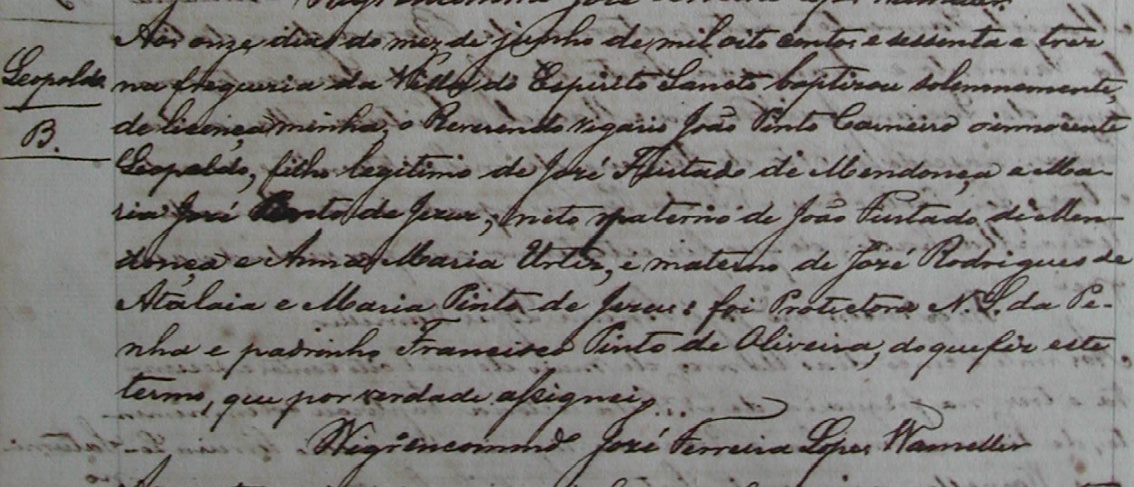 Leopoldo.
B.
Aos onze dias do mez de junho de mil oito centos e sessenta e trez
na freguezia da Villa do Espirito Sancto baptizou solemnemente,
de licença minha, o Reverendo Vigario João Pinto Carneiro o innocente
Leopoldo, filho legitimo de José Furtado de Mendonça e Ma-
ria José Pinto de Jezus, neto paterno de João Furtado de Men-
donça e Anna Maria Urtiz, e materno de José Rodrigues de
Atalaia e Maria Pinto de Jezus: foi Protectora N. S. da Pe-
nha e padrinho Francisco Pinto de Oliveira, do que fiz este
termo, que por verdade assignei,
José Ferreira Lopes